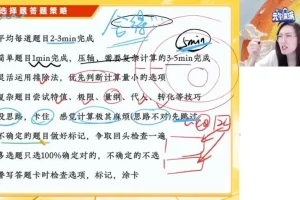 选择题答题策略
平均每道题目2-3min完成
简单题目1min完成，压轴，需要复杂计算的3-5min完成
灵活运用排除法，优先判断计算量小的选项
复杂题目尝试特值、极限、量纲、代入、转化等技巧
没思路，卡住，感觉计算极其麻烦(思路不对)先跳过
不确定的题目做好标记，争取回头检查一遍
多选题只选100%确定对的，不确定的不选
誊写答题卡时检查选项，标记，涂卡
5min